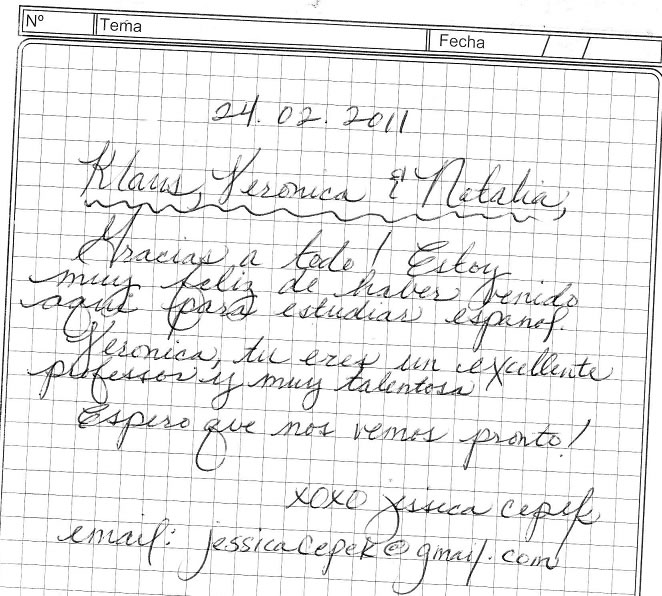 Nº Tema Fecha / /
24.02.2011
Klaus, Veronica & Natalia,
Gracias a todo! Estoy
muy feliz de haber venido
aqui para estudiar español.
Veronica, tu eres un excellente
professor y muy talentosa
Espero que nos vemos pronto!
xoxo jessica cepek
email: jessicacepek@gmail.com